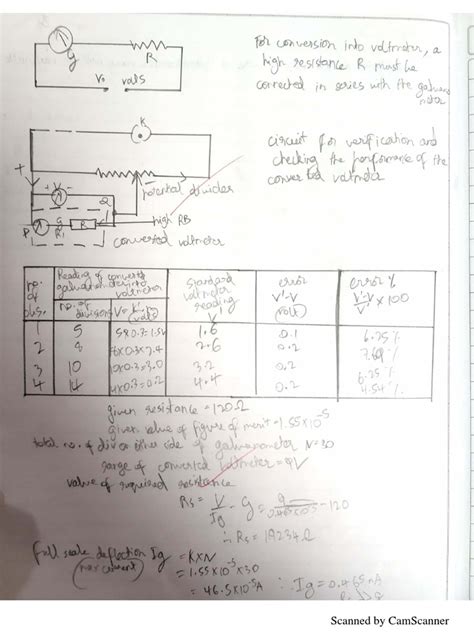 G
R
Vo volts
For conversion into voltmeter, a
high resistance R must be
connected in series with the galvano
meter
K
circuit for verification and
checking the performance of the
converted voltmeter
+
+ V -
Q
potential divider
high RB
P
G
R
converted voltmeter
no. of obs.
Reading of converted galvanometer into voltmeter
no. of divisions
standard voltmeter reading V'
error V'-V (volt)
error % V'-V/V' x 100
1 5 5x0.3=1.5V 1.6 0.1 6.25%
2 8 2.6 0.2 7.69%
3 10 10x0.3=3.0 3.2 0.2 6.25%
4 14 4.4 0.2 4.54%
given resistance = 120Ω
given value of figure of merit = 1.55x10^-5
total no. of div on other side of galvanometer N=30
range of converted voltmeter = 9V
value of required resistance
Rs = V/Ig - G = 120
∴ Rs = 19234Ω
Full scale deflection Ig = KxN
(max current) = 1.55x10^-5x30
= 46.5x10^-5A ∴ Ig = 0.465 mA
Scanned by CamScanner